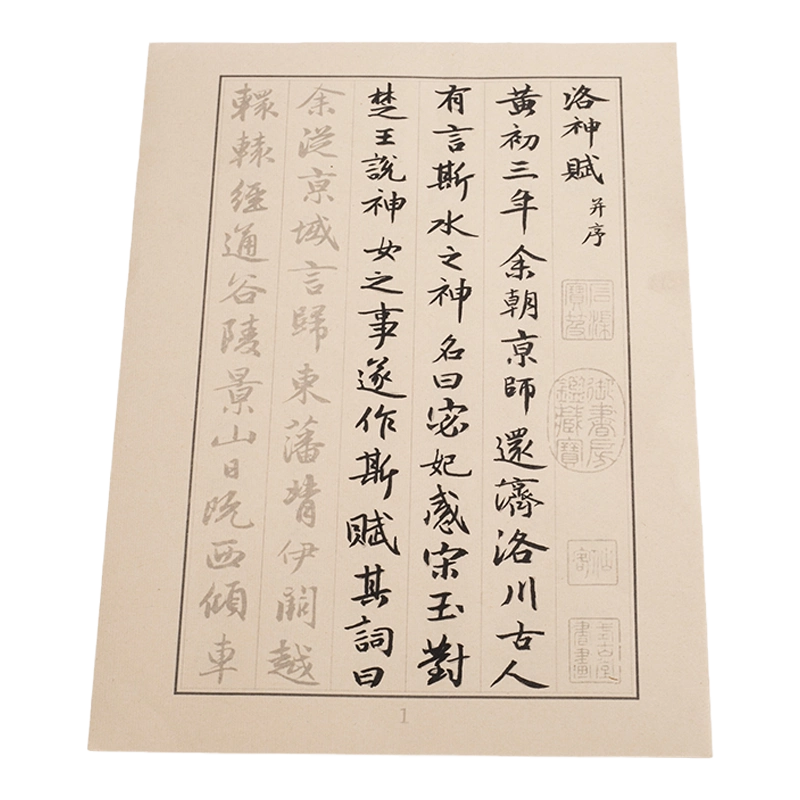 洛神賦 并序
石渠寶笈
御書房鑑藏寶
黄初三年余朝亰師還濟洛川古人
有言斯水之神名曰宓妃感宋玉對
楚王說神女之事遂作斯賦其詞曰
余從亰域言歸東藩背伊闕越
轘轅經通谷陵景山日既西傾車
1